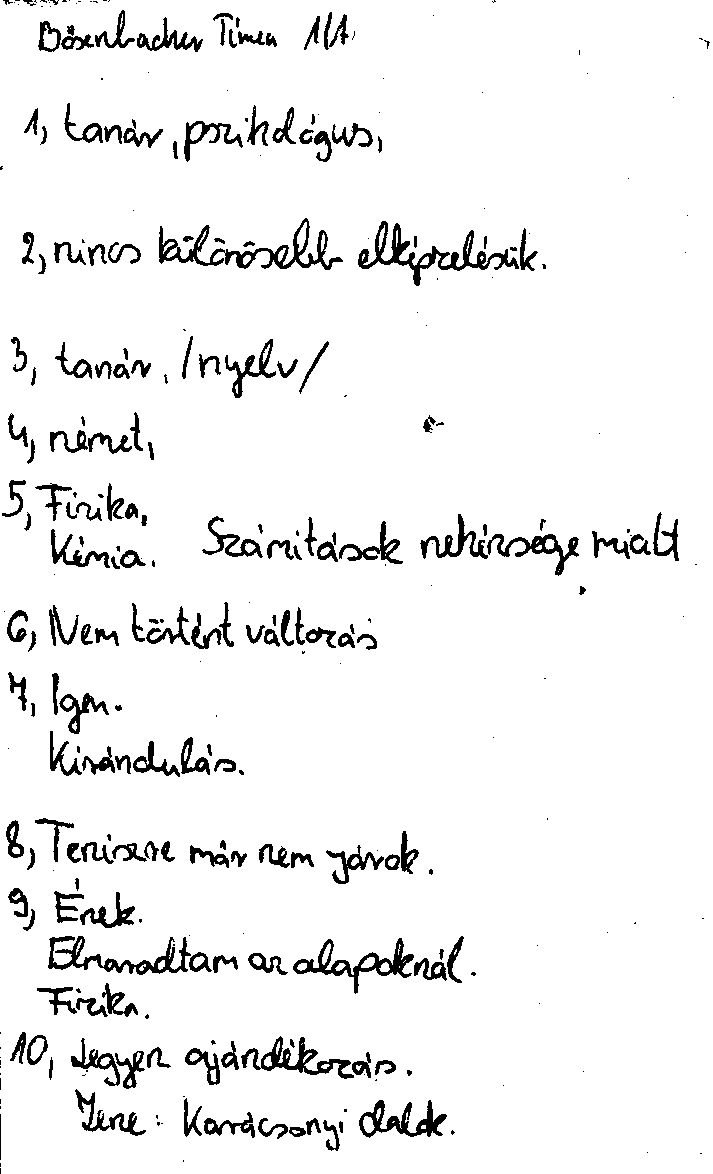 Bösenbacher Tímea 1/A
1, tanár, pszihológus,
2, nincs különösebb elképzelésük.
3, tanár, /nyelv/
4, német,
5, Fizika,
Kémia. Számitások nehézsége miatt
6, Nem történt változás
7, Igen.
Kirándulás.
8, Teniszre már nem járok.
9, Ének.
Elmaradtam az alapoknál.
Fizika.
10, Legyen ajándékozás.
Zene: Karácsonyi dalok.